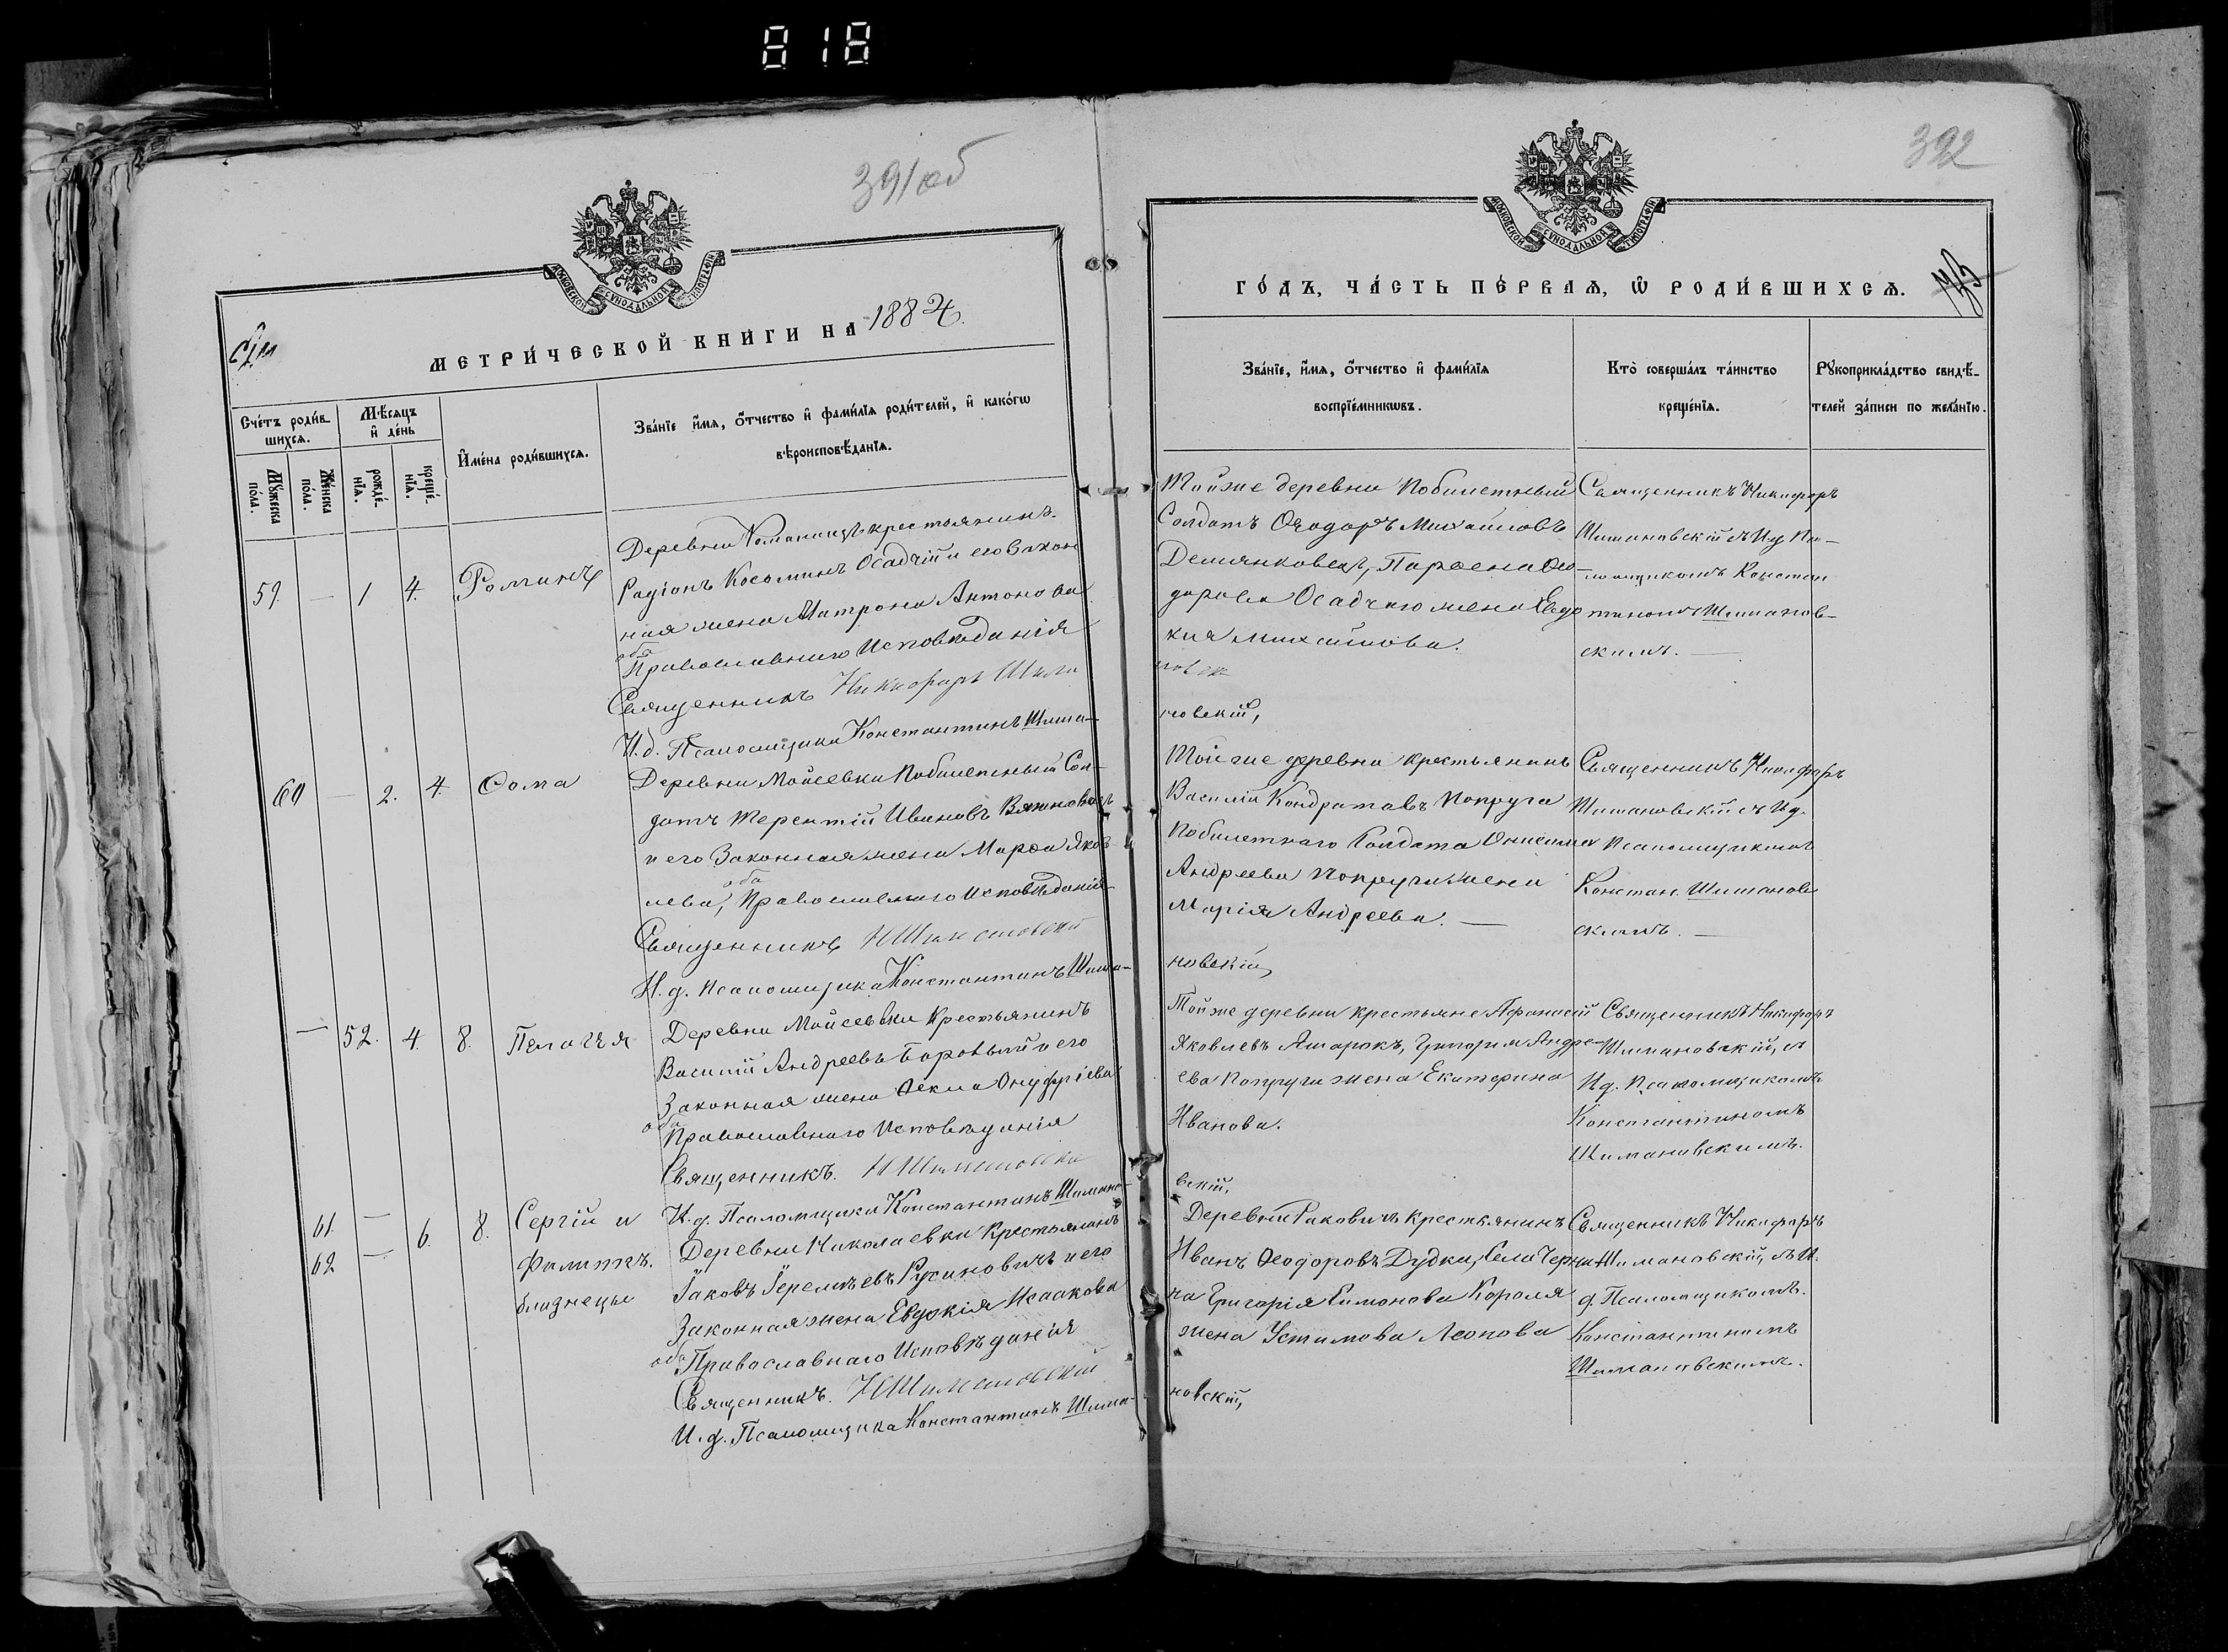 818
391об
МОСКОВСКОЙ СѴНОДАЛЬНОЙ ТИПОГРАФІИ
МЕТРИ́ЧЕСКОЙ КНИГИ НА 1884.
Сче́тъ роди́в-
шихсѧ.
Мѣ́сѧцъ
и҆ де́нь
Мꙋ́жеска по́ла.
Же́нска по́ла.
рожде́-
нїѧ.
креще́-
нїѧ.
И҆мена̀ роди́вшихсѧ.
Зва́нїе и҆́мѧ, ѻ҆́тчество и҆ фами́лїѧ роди́телей, и҆ како́гѡ
вѣроисповѣ́данїѧ.
59. — 1 4. Романъ
Деревни Команицъ крестьянинъ
Радіонъ Косьминъ Осадчій и его закон
ная жена Матрона Антонова
оба
Православнаго Исповѣданія
Священникъ Никифоръ Шима
И.д. Псаломщика Константинъ Шима-
60 — 2. 4. Ѳома
Деревни Мойсевки Побилетный Сол-
датъ Терентій Ивановъ
и его Законная жена Марѳа Яков
лева, оба Православнаго Исповѣданія
Священникъ НШимановскій
И.д. Псаломщика Константинъ Шима-
— 52. 4. 8. Пелагея
Деревни Мойсеевки Крестьянинъ
Василій Андреевъ Боровый и его
Законная жена Ѳекла Онуфріева
оба Православнаго Исповѣданія
Священникъ. НШимановскій
И.д. Псаломщика Константинъ Шимано-
61. — 6. 8. Сергій и
62 — Филиппъ.
близнецы
Деревни Николаевки Крестьянинъ
Іаковъ Іеремѣевъ Русиновичъ и его
Законная жена Евдокія Исаакова
оба Православнаго Исповѣданія
Священникъ. НШимановскій
И.д. Псаломщика Константинъ Шима-
392
МОСКОВСКОЙ СѴНОДАЛЬНОЙ ТИПОГРАФІИ
ГО́ДЪ, ЧА́СТЬ ПЕ́РВАѦ, Ѡ҆ РОДИ́ВШИХСѦ.
Зва́нїе, и҆́мѧ, ѻ҆́тчество и҆ фами́лїѧ
воспрїе́мникѡвъ.
Кто̀ соверша́лъ та́инство
креще́нїѧ.
Рꙋкоприкла́дство свидѣ́-
телей за́писи по жела́нїю.
Тойже деревни Побилетный
Солдатъ Ѳеодоръ Михайловъ
Демянковецъ, Парѳена Ѳео-
дорова Осадчаго жена Евдо
кія Михайлова.
новскій,
Священникъ Никифоръ
Шимановскій съ Ид Пса-
ломщикомъ Констан
тиномъ Шиманов-
скимъ. —
Тойже деревни крестьянинъ
Василій Кондратовъ Попруга
Побилетнаго Солдата Онисима
Андреева Попруги жена
Марія Андреева. —
новскій,
Священникъ Никифоръ
Шимановскій съ Ид.
Псаломщикомъ
Констан. Шиманов
скимъ. —
Тойже деревни крестьяне Аѳанасій
Яковлевъ Ягнарокъ, Григорія Андре-
ева Попруги жена Екатерина
Иванова.
вскій,
Священникъ Никифоръ
Шимановскій, съ
Ид. Псаломщикомъ
Константиномъ
Шимановскимъ.
Деревни Раковичъ крестьянинъ
Иванъ Ѳеодоровъ Дудка, Села Черни-
на Григорія Симонова Короля
жена Устимова Леонова
новскій,
Священникъ Никифоръ
Шимановскій, съ И.
д. Псаломщикомъ.
Константиномъ
Шимановскимъ.